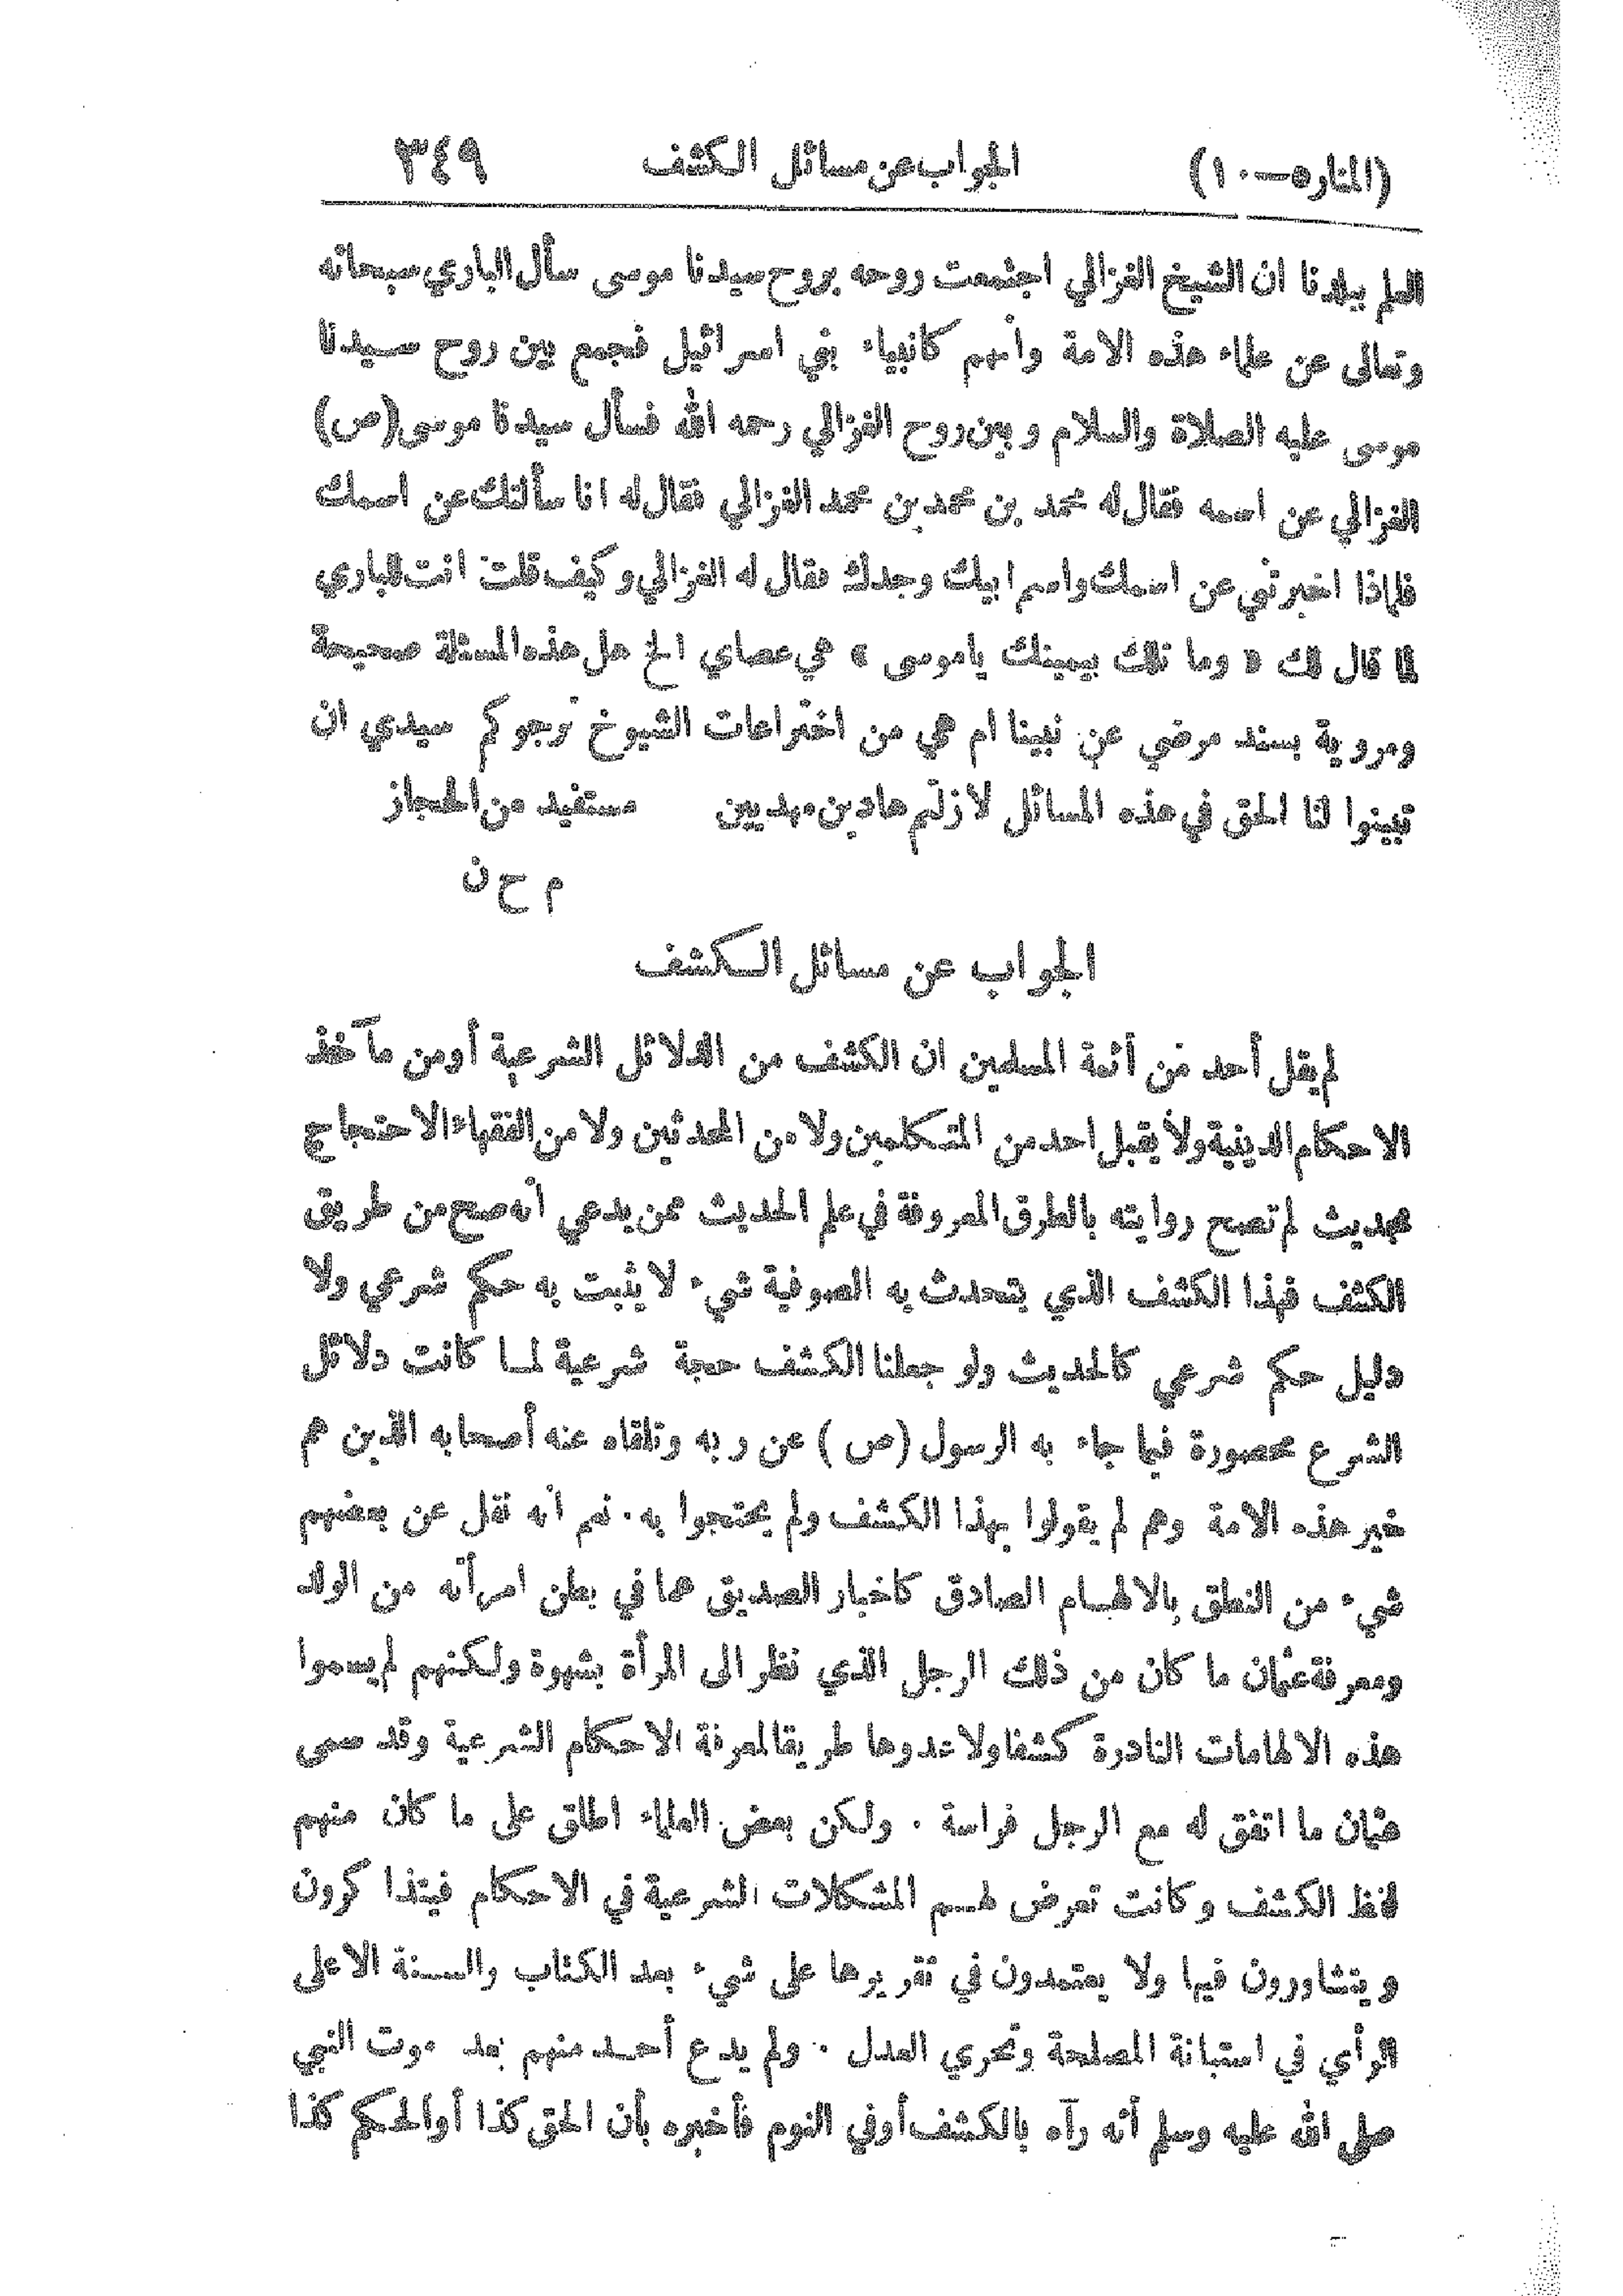 (المنار ٥ — ١٠) الجواب عن مسائل الكشف ٣٤٩
العلم ببلادنا ان الشيخ الغزالي اجتمعت روحه بروح سيدنا موسى سأل الباري سبحانه
وتعالى عن علماء هذه الامة وأنهم كانبياء بني اسرائيل فجمع بين روح سيدنا
موسى عليه الصلاة والسلام وبين روح الغزالي رحمه الله فسأل سيدنا موسى (ص)
الغزالي عن اسمه فقال له محمد بن محمد بن محمد الغزالي فقال له انا سألتك عن اسمك
فلماذا اخبرتني عن اسمك واسم ابيك وجدك فقال له الغزالي وكيف قلت انت للباري
لما قال لك « وما تلك بيمينك ياموسى » هي عصاي الخ هل هذه المسئلة صحيحة
ومروية بسند مرضي عن نبينا ام هي من اختراعات الشيوخ نرجوكم سيدي ان
تبينوا لنا الحق في هذه المسائل لازلتم هادين مهديين مستفيد من الحجاز
م ح ن
الجواب عن مسائل الكشف
لم يقل أحد من أئمة المسلمين ان الكشف من الدلائل الشرعية أو من مآخذ
الاحكام الدينية ولا يقبل احد من المتكلمين ولا من المحدثين ولا من الفقهاء الاحتجاج
بحديث لم تصح روايته بالطرق المعروفة في علم الحديث ممن يدعي أنه صح من طريق
الكشف فهذا الكشف الذي يتحدث به الصوفية شيء لا يثبت به حكم شرعي ولا
دليل حكم شرعي كالحديث ولو جعلنا الكشف حجة شرعية لما كانت دلائل
الشرع محصورة فيما جاء به الرسول (ص) عن ربه وتلقاه عنه أصحابه الذين هم
خير هذه الامة وهم لم يقولوا بهذا الكشف ولم يحتجوا به . نعم انه نقل عن بعضهم
شيء من النطق بالالهام الصادق كاخبار الصديق عما في بطن امرأته من الولد
ومعرفة عثمان ما كان من ذلك الرجل الذي نظر الى المرأة بشهوة ولكنهم لم يسموا
هذه الالهامات النادرة كشفا ولا عدوها طريقا لمعرفة الاحكام الشرعية وقد سمى
عثمان ما اتفق له مع الرجل فراسة . ولكن بعض العلماء اطلق على ما كان منهم
لفظ الكشف وكانت تعرض لهم المشكلات الشرعية في الاحكام فيتذاكرون
ويتشاورون فيها ولا يعتمدون في تقريرها على شيء بعد الكتاب والسنة الا على
الرأي في استبانة المصلحة وتحري العدل . ولم يدع أحد منهم بعد موت النبي
صلى الله عليه وسلم أنه رآه بالكشف أو في النوم فأخبره بأن الحق كذا أو الحكم كذا